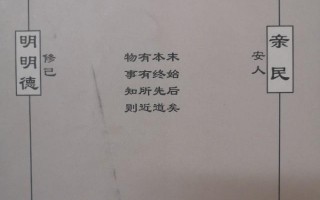 明明德
修己
物有本末
事有终始
知所先后
则近道矣
亲民
安人